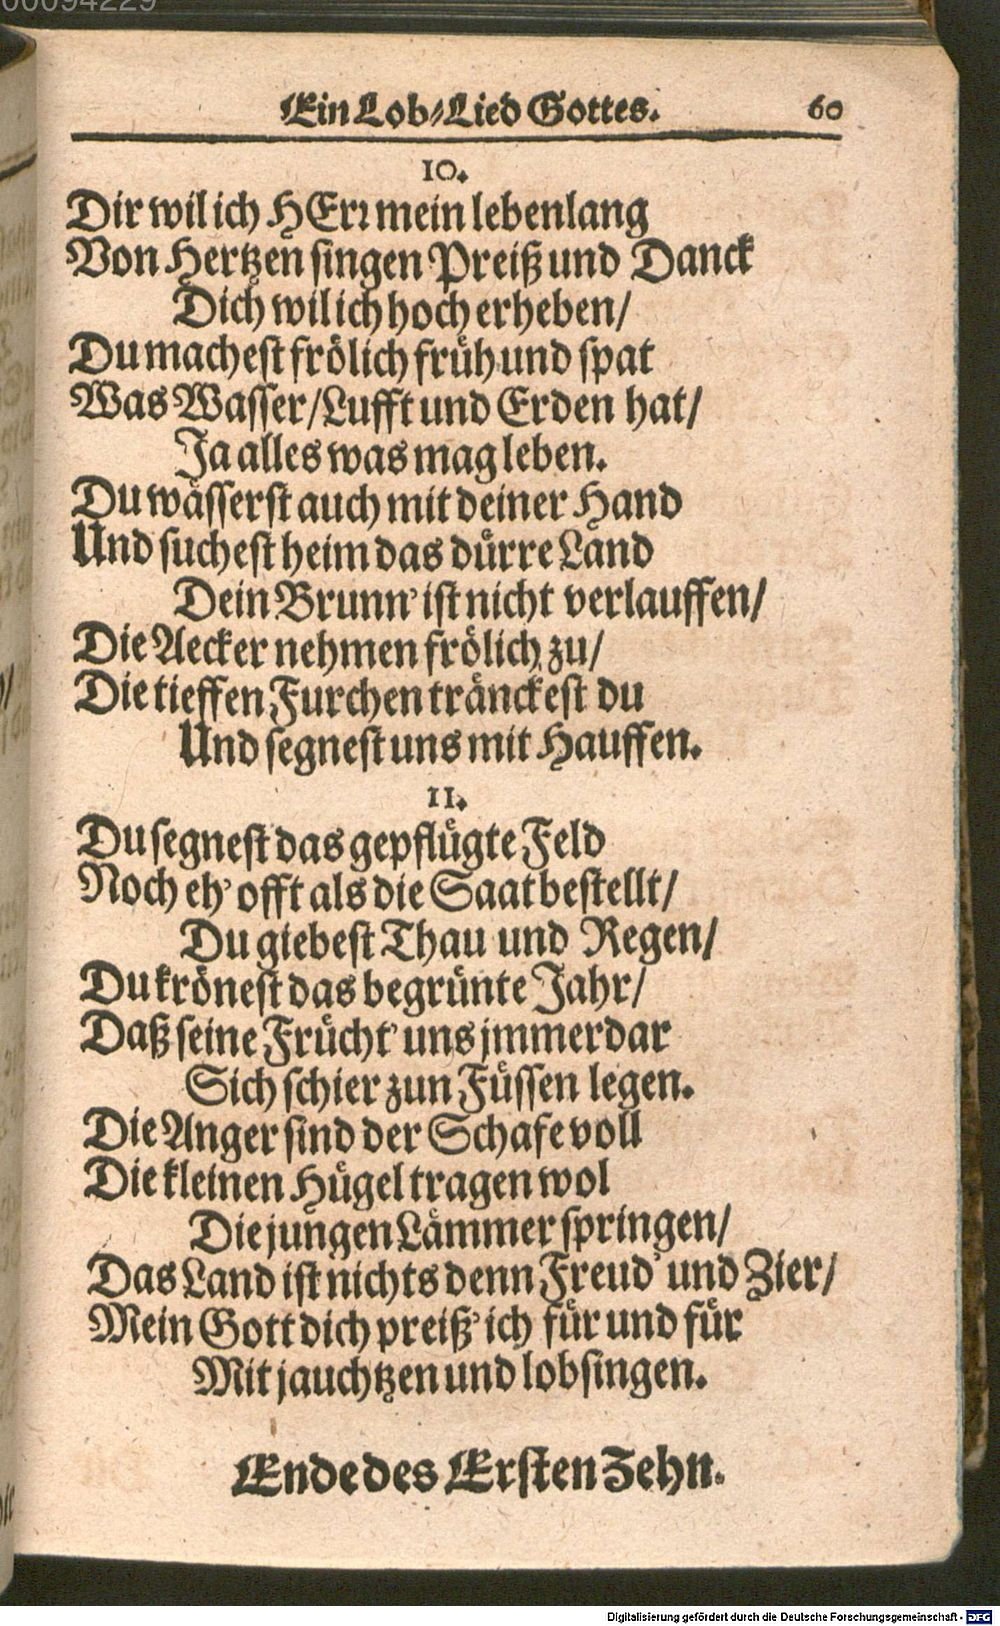 00094229
Ein Lob-Lied Gottes. 60
10.
Dir wil ich HErꝛ mein lebenlang
Von Hertzen singen Preiß und Danck
Dich wil ich hoch erheben/
Du machest frölich früh und spat
Was Wasser/Lufft und Erden hat/
Ja alles was mag leben.
Du wässerst auch mit deiner Hand
Und suchest heim das dürre Land
Dein Brunn' ist nicht verlauffen/
Die Aecker nehmen frölich zu/
Die tieffen Furchen tränckest du
Und segnest uns mit Hauffen.
11.
Du segnest das gepflügte Feld
Noch eh' offt als die Saat bestellt/
Du giebest Thau und Regen/
Du krönest das begrünte Jahr/
Daß seine Frücht' uns jmmerdar
Sich schier zun Füssen legen.
Die Anger sind der Schafe voll
Die kleinen Hügel tragen wol
Die jungen Lämmer springen/
Das Land ist nichts denn Freud' und Zier/
Mein Gott dich preiß' ich für und für
Mit jauchtzen und lobsingen.
Ende des Ersten Zehn.
Digitalisierung gefördert durch die Deutsche Forschungsgemeinschaft - DFG